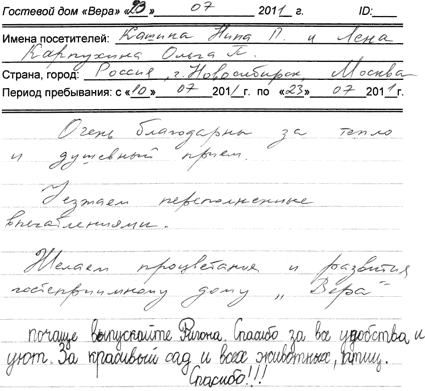 Гостевой дом «Вера» «23» 07 2011 г. ID:
Имена посетителей: Кашина Нина П. и Лена
Карпухина Ольга П.
Страна, город: Россия, г. Новосибирск, Москва
Период пребывания: с «10» 07 2011 г. по «23» 07 2011 г.
Очень благодарны за тепло
и душевный прием.
Уезжаем переполненные
впечатлениями.
Желаем процветания и развития
гостеприимному дому „Вера“
почаще выпускайте Филона. Спасибо за все удобства и
уют. За красивый сад и всех животных, птиц.
Спасибо!!!